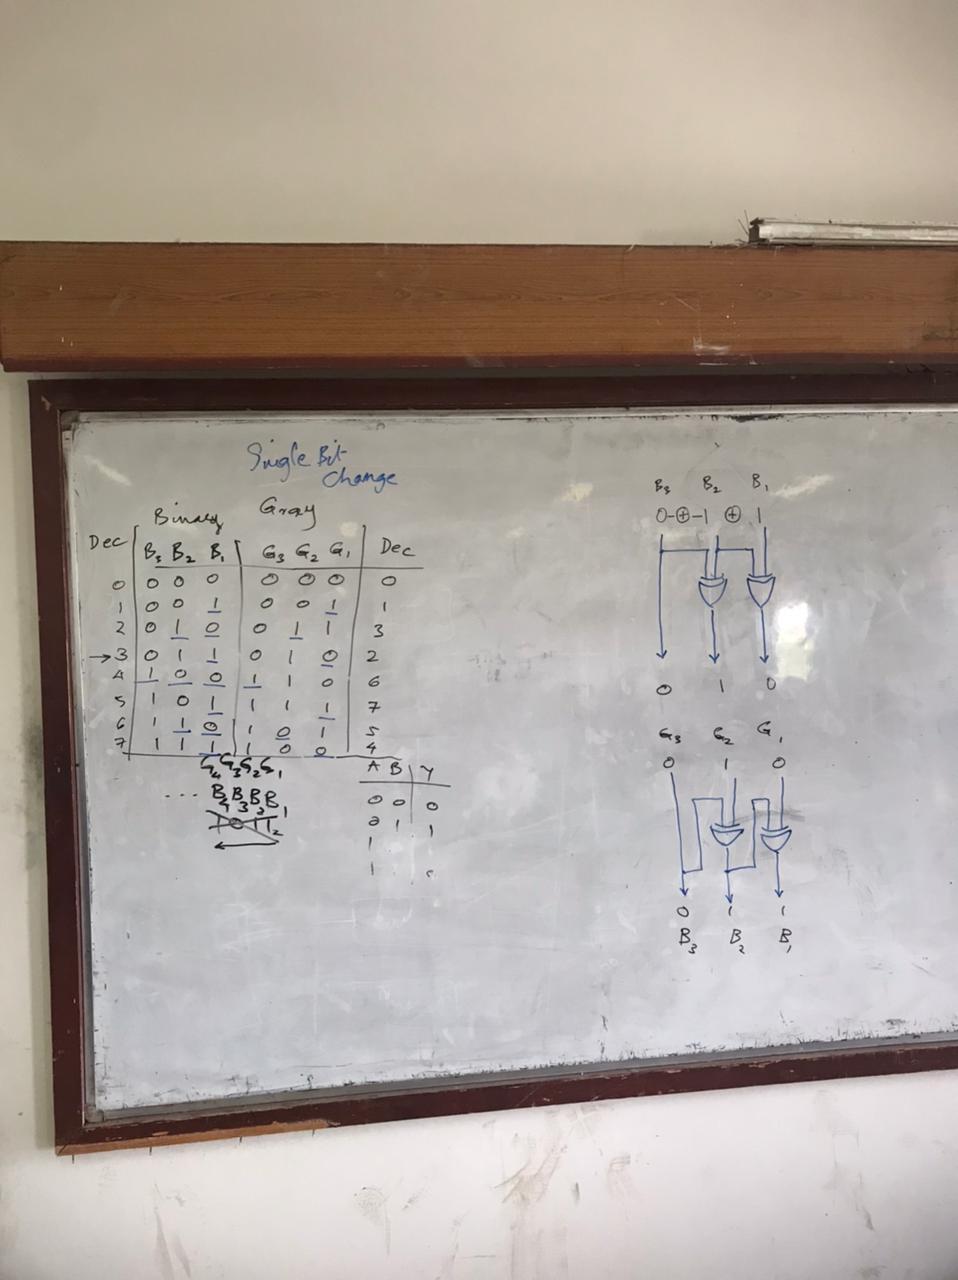 Single Bit
Change
Binary Gray
Dec B₃ B₂ B₁ G₃ G₂ G₁ Dec
0 0 0 0 0 0 0 0
1 0 0 1 0 0 1 1
2 0 1 0 0 1 1 3
→3 0 1 1 0 1 0 2
4 1 0 0 1 1 0 6
5 1 0 1 1 1 1 7
6 1 1 0 1 0 1 5
7 1 1 1 1 0 0 4
G₄ G₃ G₂ G₁
.... B₄ B₃ B₂ B₁
A B Y
0 0 0
0 1 1
1
1
B₃ B₂ B₁
0-⊕-1 ⊕ 1
0 1 0
G₃ G₂ G₁
0 1 0
0 1 1
B₃ B₂ B₁